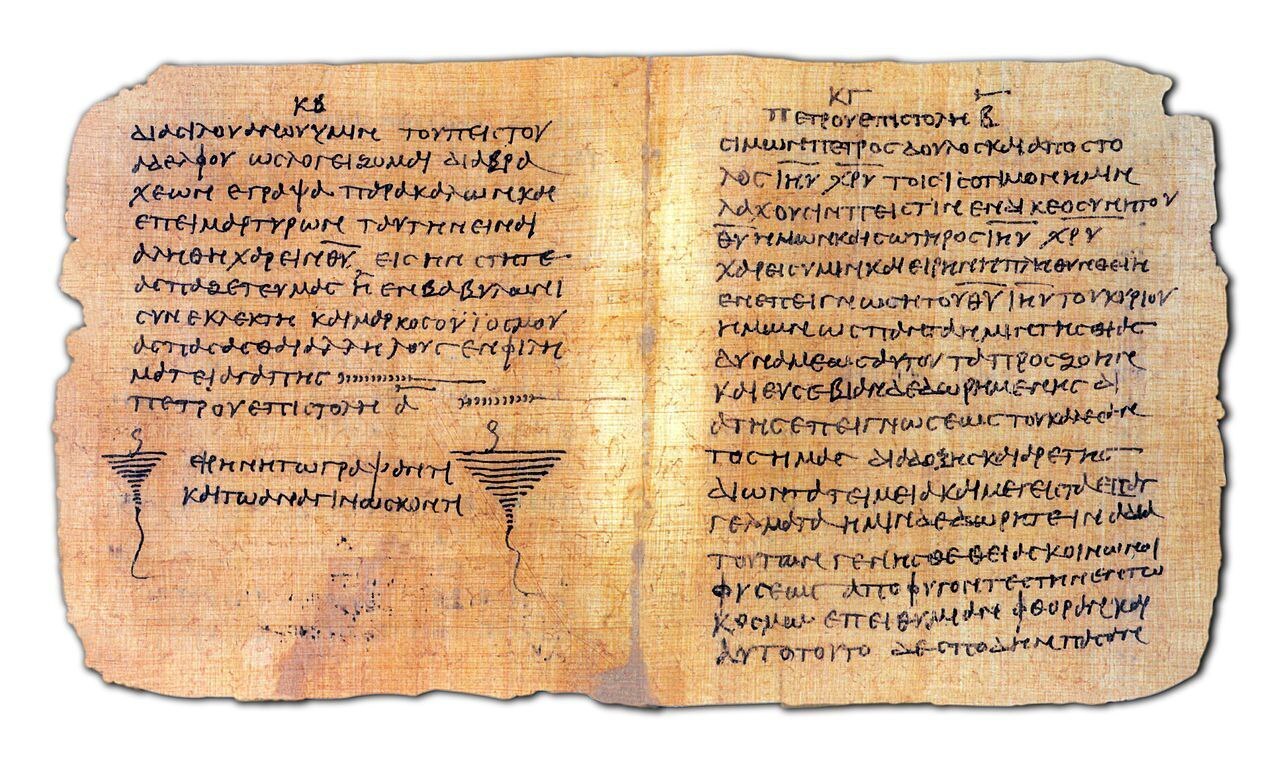 ΚΒ
ΔΙΑ ΣΙΛΟΥΑΝΟΥ ΥΜΙΝ ΤΟΥ ΠΕΙΣΤΟΥ
ΑΔΕΛΦΟΥ ΩΣ ΛΟΓΕΙΖΟΜΑΙ ΔΙΑ ΒΡΑ
ΧΕΩΝ ΕΓΡΑΨΑ ΠΑΡΑΚΑΛΩΝ ΚΑΙ
ΕΠΕΙΜΑΡΤΥΡΩΝ ΤΑΥΤΗΝ ΕΙΝΑΙ
ΑΛΗΘΗ ΧΑΡΕΙΝ Θ̅Υ̅ ΕΙΣ ΗΝ ΣΤΗΤΕ
ΑΣΠΑΖΕΤΕ ΥΜΑΣ Η ΕΝ ΒΑΒΥΛΩΝΙ
ΣΥΝΕΚΛΕΚΤΗ ΚΑΙ ΜΑΡΚΟΣ Ο ΥΙΟΣ ΜΟΥ
ΑΣΠΑΣΑΣΘΑΙ ΑΛΛΗΛΟΥΣ ΕΝ ΦΙΛΗ
ΜΑΤΕΙ ΑΓΑΠΗΣ
ΠΕΤΡΟΥ ΕΠΙΣΤΟΛΗ Α
ΕΙΡΗΝΗ ΤΩ ΓΡΑΨΑΝΤΙ
ΚΑΙ ΤΩ ΑΝΑΓΙΝΩΣΚΟΝΤΙ
ΚΓ
ΠΕΤΡΟΥ ΕΠΙΣΤΟΛΗ Β
ΣΙΜΩΝ ΠΕΤΡΟΣ ΔΟΥΛΟΣ ΚΑΙ ΑΠΟΣΤΟ
ΛΟΣ Ι̅Η̅Υ̅ Χ̅Ρ̅Υ̅ ΤΟΙΣ ΙΣΟΤΙΜΟΝ ΗΜΙΝ
ΛΑΧΟΥΣΙΝ ΠΕΙΣΤΙΝ ΕΝ ΔΙΚΕΟΣΥΝΗ ΤΟΥ
Θ̅Υ̅ ΗΜΩΝ ΚΑΙ ΣΩΤΗΡΟΣ Ι̅Η̅Υ̅ Χ̅Ρ̅Υ̅
ΧΑΡΕΙΣ ΥΜΙΝ ΚΑΙ ΕΙΡΗΝΗ ΠΛΗΘΥΝΘΕΙΗ
ΕΝ ΕΠΕΙΓΝΩΣΗ ΤΟΥ Θ̅Υ̅ Ι̅Η̅Υ̅ ΤΟΥ ΚΥΡΙΟΥ
ΗΜΩΝ ΩΣ ΠΑΝΤΑ ΗΜΙΝ ΤΗΣ ΘΙΑΣ
ΔΥΝΑΜΕΩΣ ΑΥΤΟΥ ΤΑ ΠΡΟΣ ΖΟΗΝ
ΚΑΙ ΕΥΣΕΒΙΑΝ ΔΕΔΩΡΗΜΕΝΗΣ ΔΙ
Α ΤΗΣ ΕΠΕΙΓΝΩΣΕΩΣ ΤΟΥ ΚΑΛΕΣΑΝ
ΤΟΣ ΗΜΑΣ ΔΙΑ ΔΟΞΗΣ ΚΑΙ ΑΡΕΤΗΣ
ΔΙ ΩΝ ΤΑ ΤΕΙΜΕΙΑ ΚΑΙ ΜΕΓΕΙΣΤΑ ΕΠΑΓ
ΓΕΛΜΑΤΑ ΗΜΙΝ ΔΕΔΩΡΗΤΕ ΙΝΑ ΔΙΑ
ΤΟΥΤΩΝ ΓΕΝΗΣΘΕ ΘΕΙΑΣ ΚΟΙΝΩΝΟΙ
ΦΥΣΕΩΣ ΑΠΟΦΥΓΟΝΤΕΣ ΤΗΝ ΕΝ ΤΩ
ΚΟΣΜΩ ΕΠΕΙΘΥΜΙΑΝ ΦΘΟΡΑΝ ΚΑΙ
ΑΥΤΟ ΤΟΥΤΟ ΔΕ ΣΠΟΔΗΝ ΠΑΣΑΝ